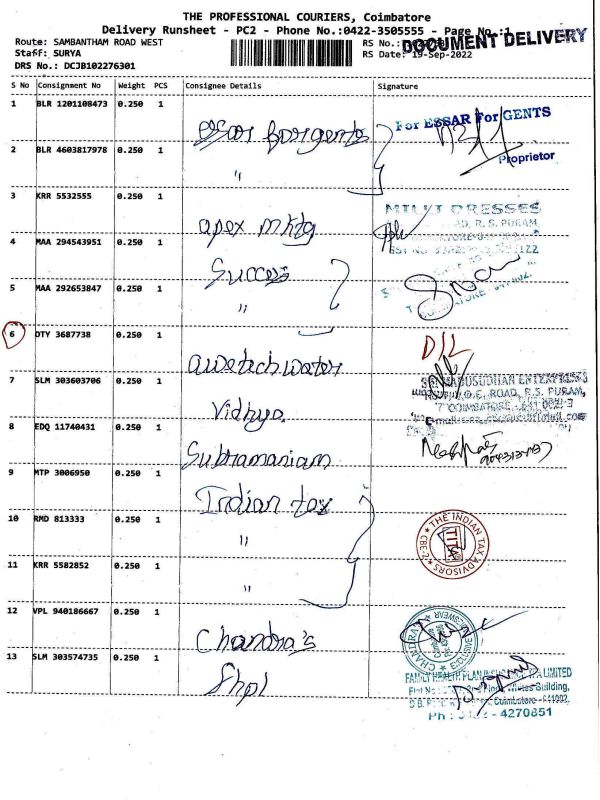 THE PROFESSIONAL COURIERS, Coimbatore
Delivery Runsheet - PC2 - Phone No.:0422-3505555 - Page No.:1
Route: SAMBANTHAM ROAD WEST
RS No.:
DOCUMENT DELIVERY
Staff: SURYA
RS Date: 19-Sep-2022
DRS No.: DCJB102276301
S No Consignment No Weight PCS Consignee Details Signature
1 BLR 1201108473 0.250 1 essar for gents
For ESSAR For GENTS
2 BLR 4603817978 0.250 1 "
Proprietor
3 KRR 5532555 0.250 1 apex mktg
R. S. PURAM
4 MAA 294543951 0.250 1 Success
5 MAA 292653847 0.250 1 "
6 DTY 3687738 0.250 1 awetech water
7 SLM 303603706 0.250 1 Vidhya.
ENTERPRISES
O.E. ROAD, R.S. PURAM,
8 EDQ 11740431 0.250 1 Subramaniam
9 MTP 3006950 0.250 1 Indian tax
10 RMD 813333 0.250 1 "
THE INDIAN TAX ADVISORS CBE-2
11 KRR 5582852 0.250 1 "
12 VPL 940186667 0.250 1 Chandra's
13 SLM 303574735 0.250 1 Fhpl
FAMILY HEALTH PLAN INSURANCE TPA LIMITED
Building,
Coimbatore - 641002.
4270851